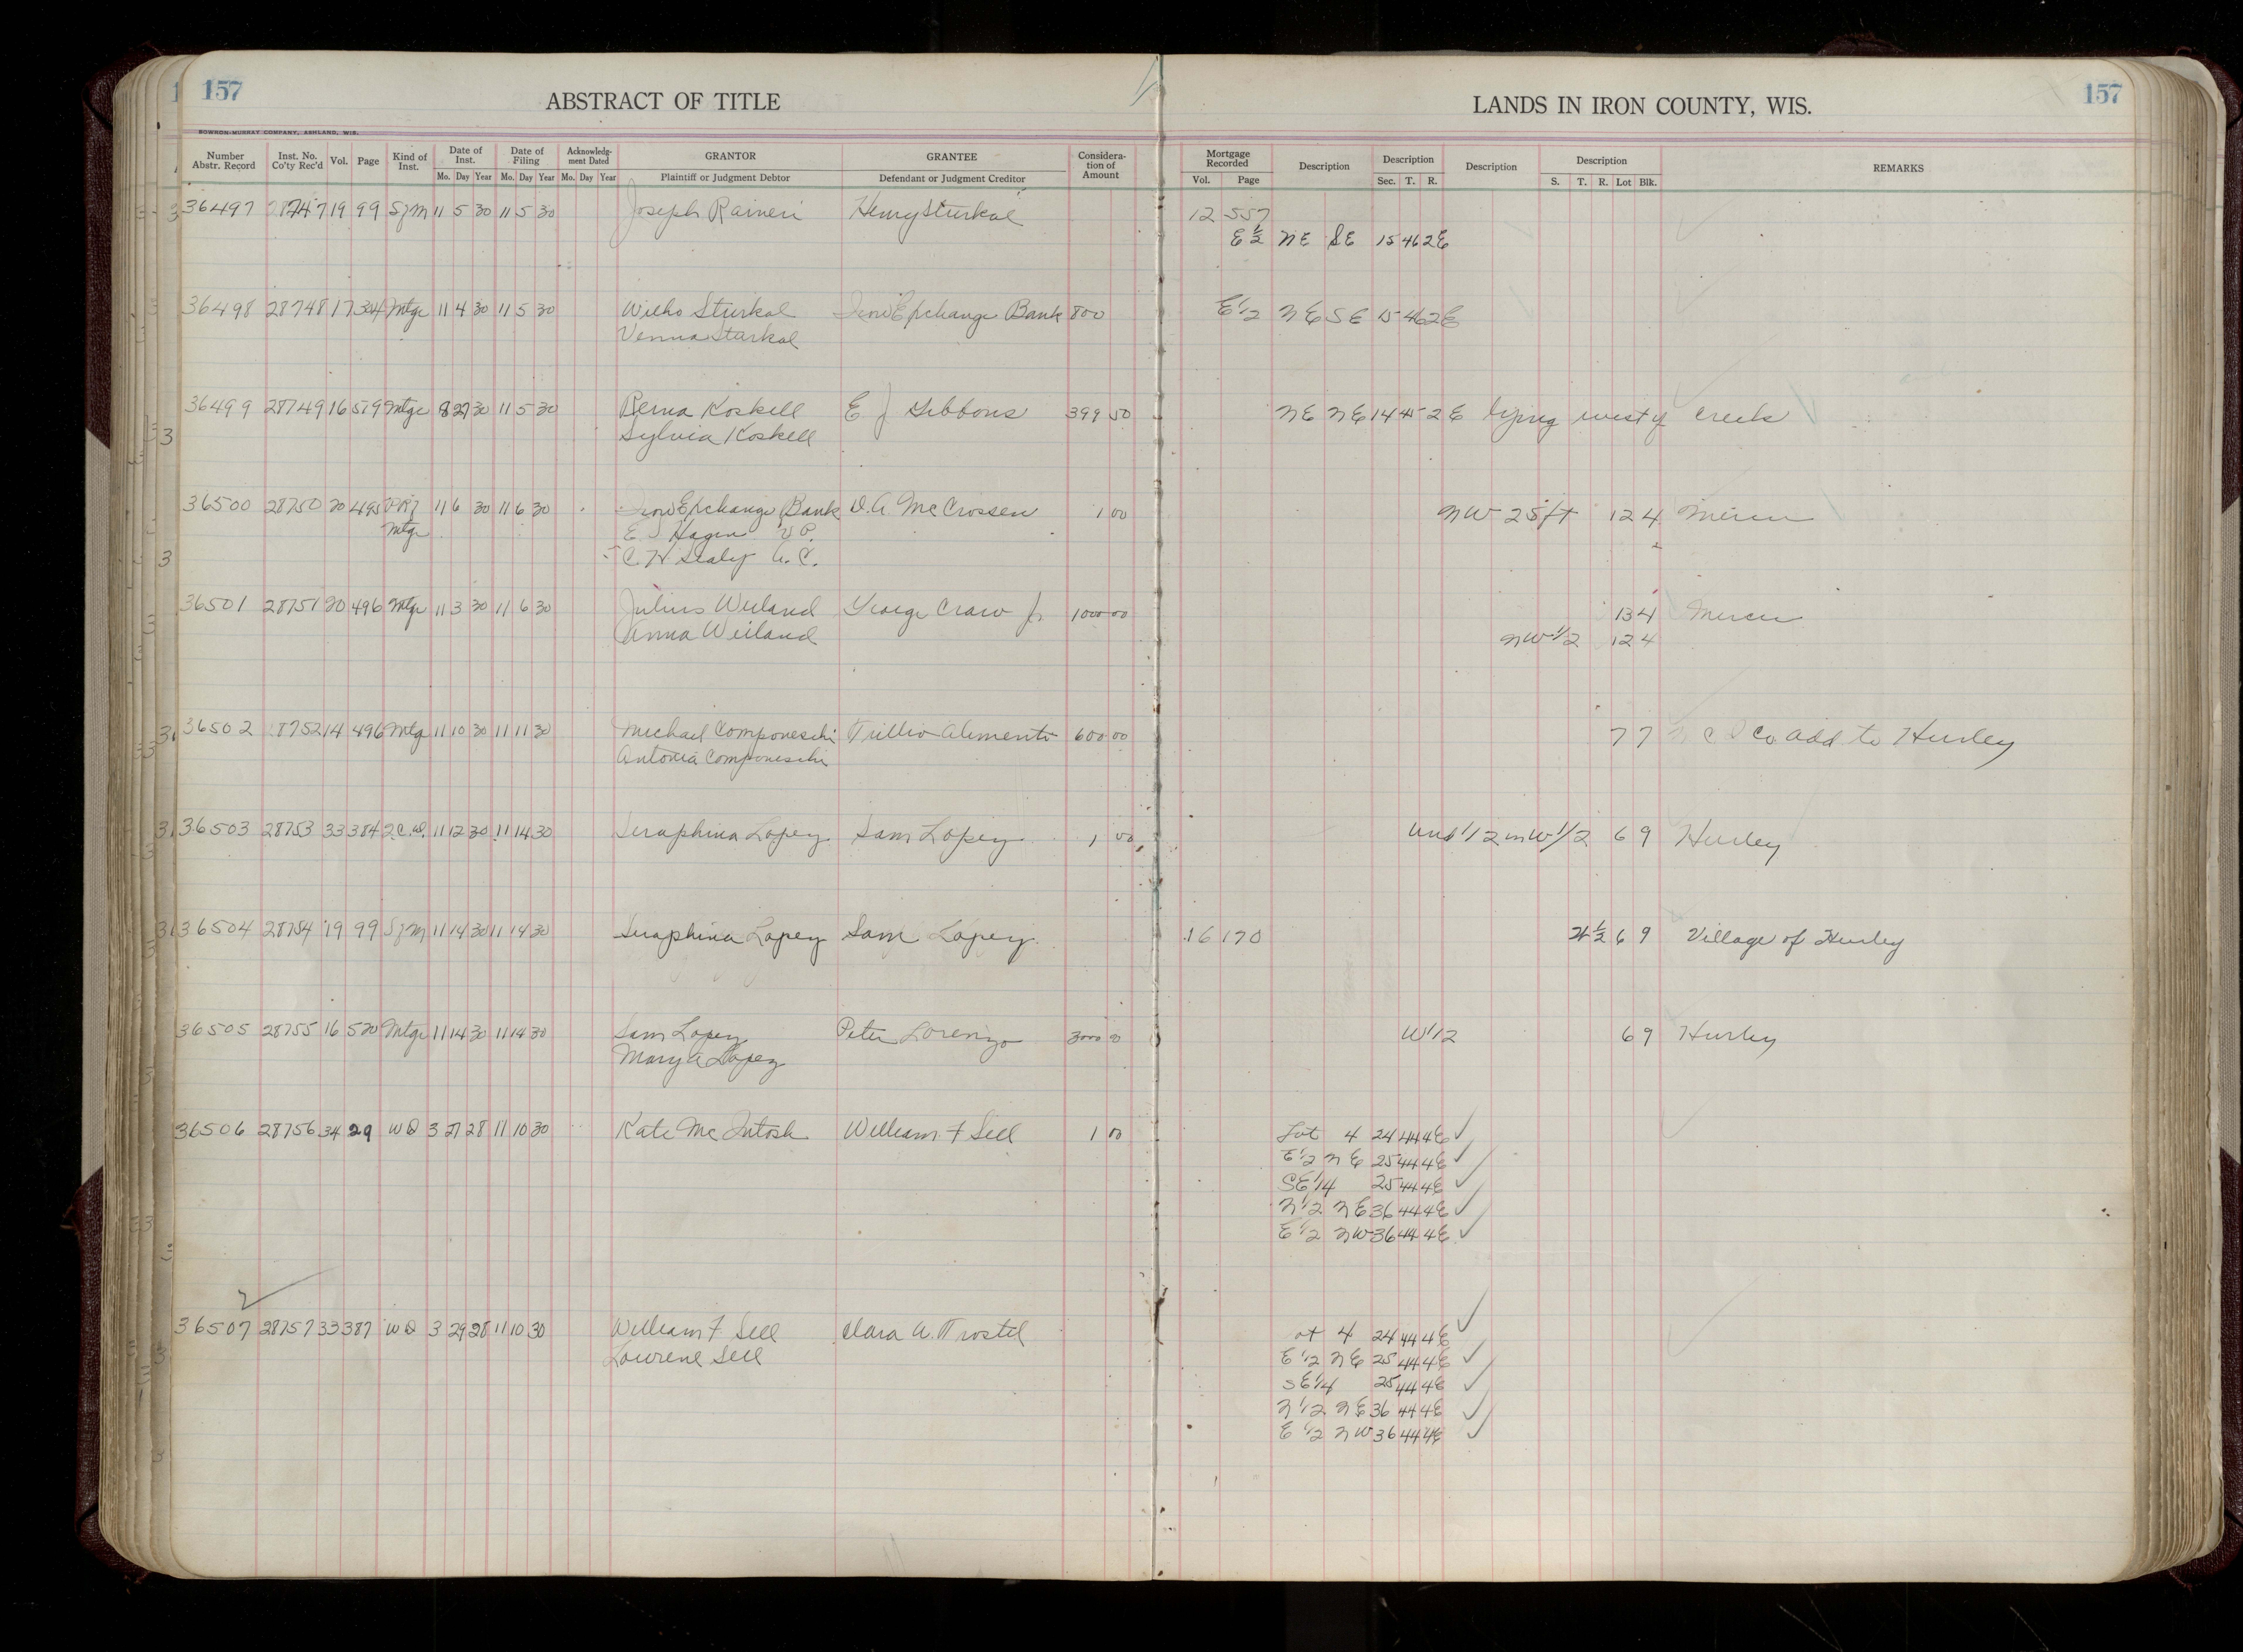 157
ABSTRACT OF TITLE
LANDS IN IRON COUNTY, WIS.
157
BOWRON-MURRAY COMPANY, ASHLAND, WIS.
Number Abstr. Record Inst. No. Co'ty Rec'd Vol. Page Kind of Inst. Date of Inst. Mo. Day Year Date of Filing Mo. Day Year Acknowledg-ment Dated Mo. Day Year GRANTOR Plaintiff or Judgment Debtor GRANTEE Defendant or Judgment Creditor Considera-tion of Amount Mortgage Recorded Vol. Page Description Description Sec. T. R. Description Description S. T. R. Lot Blk. REMARKS
36497 28747 19 99 Sfm 11 5 30 11 5 30 Joseph Raineri Henry Sturkol 12 557
E 1/2 NE SE 15 46 2E
36498 28748 17 304 Mtge 11 4 30 11 5 30 Wilho Sturkol Iron Exchange Bank 800 E 1/2 NE SE 15 46 2E
Venna Sturkol
36499 28749 16 519 Mtge 8 27 30 11 5 30 Perna Koskell E J Gibbons 399 50 NE NE 14 45 2E lying west of Creek
Sylvia Koskell
36500 28750 20 495 11 6 30 11 6 30 Iron Exchange Bank D.A. McCrossen 1 00 NW 25 ft 12 4 Mercer
Mtge E J Hagen V P.
C. H. Sealy A. C.
36501 28751 20 496 Mtge 11 3 30 11 6 30 Julius Weiland George Craw Jr 1000 00 13 4 Mercer
Anna Weiland NW 1/2 12 4
36502 28752 14 496 Mtg 11 10 30 11 11 30 Michael Componeschi Trillio Alimenti 600 00 7 7 Co. add to Hurley
Antonia Componeschi
36503 28753 33 384 2 C.D. 11 12 30 11 14 30 Seraphina Lopez Sam Lopez 1 00 und 1/2 in W 1/2 6 9 Hurley
36504 28754 19 99 Sfm 11 14 30 11 14 30 Seraphina Lopez Sam Lopez 16 170 1/2 6 9 Village of Hurley
36505 28755 16 520 Mtge 11 14 30 11 14 30 Sam Lopez Peter Lorenzo 3000 00 W 1/2 6 9 Hurley
Mary A Lopez
36506 28756 34 29 WD 3 27 28 11 10 30 Kate McIntosh William F Sell 1 00 Lot 4 24 44 4E ✓
E 1/2 NE 25 44 4E ✓
SE 1/4 25 44 4E ✓
N 1/2 NE 36 44 4E ✓
E 1/2 NW 36 44 4E ✓
36507 28757 33 387 WD 3 29 28 11 10 30 William F Sell Clara A. Trostel ot 4 24 44 4E ✓
Lourene Sell E 1/2 NE 25 44 4E ✓
SE 1/4 25 44 4E ✓
N 1/2 NE 36 44 4E ✓
E 1/2 NW 36 44 4E ✓